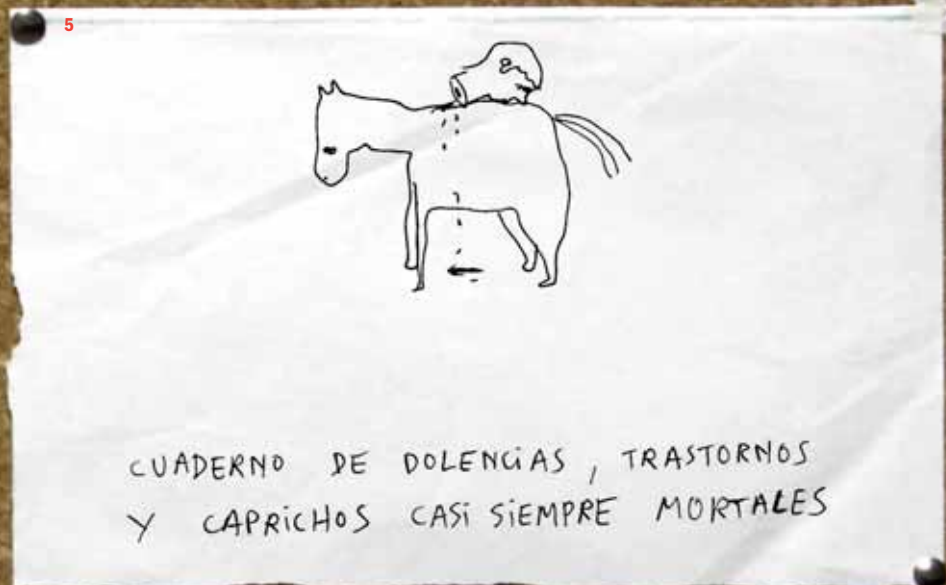 5
CUADERNO DE DOLENCiAS, TRASTORNOS
Y CAPRiCHOS CASi SiEMPRE MORTALES